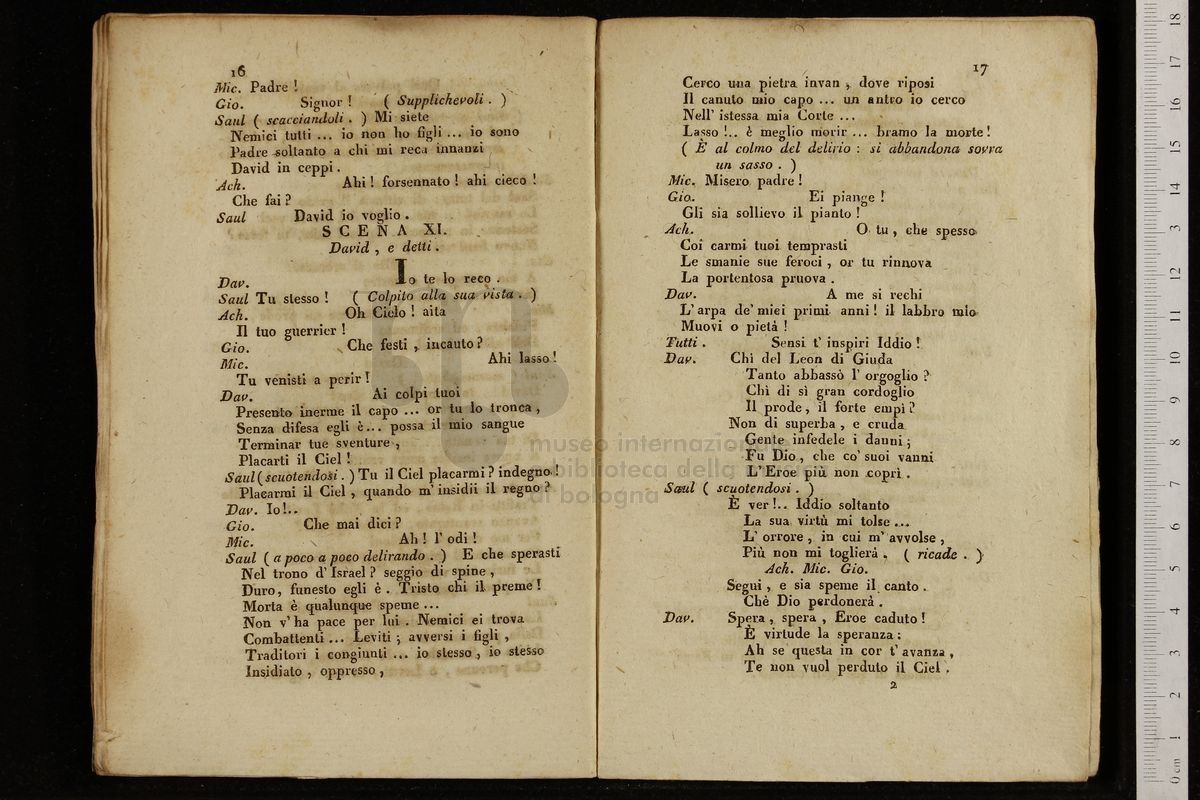 16
Mic. Padre !
Gio. Signor ! ( Supplichevoli . )
Saul ( scacciandoli . ) Mi siete
Nemici tutti ... io non ho figli ... io sono
Padre soltanto a chi mi reca innanzi
David in ceppi .
Ach. Ahi ! forsennato ! ahi cieco !
Che fai ?
Saul David io voglio .
SCENA XI.
David , e detti .
Dav. Io te lo reco .
Saul Tu stesso ! ( Colpito alla sua vista . )
Ach. Oh Cielo ! aita
Il tuo guerrier !
Gio. Che festi , incauto ?
Mic. Ahi lasso !
Tu venisti a perir !
Dav. Ai colpi tuoi
Presento inerme il capo ... or tu lo tronca ,
Senza difesa egli è ... possa il mio sangue
Terminar tue sventure ,
Placarti il Ciel !
Saul ( scuotendosi . ) Tu il Ciel placarmi ? indegno !
Placarmi il Ciel , quando m' insidii il regno ?
Dav. Io !..
Gio. Che mai dici ?
Mic. Ah ! l' odi !
Saul ( a poco a poco delirando . ) E che sperasti
Nel trono d' Israel ? seggio di spine ,
Duro, funesto egli è . Tristo chi il preme !
Morta è qualunque speme ...
Non v' ha pace per lui . Nemici ei trova
Combattenti ... Leviti ; avversi i figli ,
Traditori i congiunti ... io stesso , io stesso
Insidiato , oppresso ,
17
Cerco una pietra invan , dove riposi
Il canuto mio capo ... un antro io cerco
Nell' istessa mia Corte ...
Lasso !.. è meglio morir ... bramo la morte !
( È al colmo del delirio : si abbandona sovra
un sasso . )
Mic. Misero padre !
Gio. Ei piange !
Gli sia sollievo il pianto !
Ach. O tu , che spesso
Coi carmi tuoi temprasti
Le smanie sue feroci , or tu rinnova
La portentosa pruova .
Dav. A me si rechi
L' arpa de' miei primi anni ! il labbro mio
Muovi o pietà !
Tutti . Sensi t' inspiri Iddio !
Dav. Chì del Leon di Giuda
Tanto abbassò l' orgoglio ?
Chì di sì gran cordoglio
Il prode , il forte empì ?
Non di superba , e cruda
Gente infedele i danni ;
Fu Dio , che co' suoi vanni
L' Eroe più non coprì .
Saul ( scuotendosi . )
È ver !.. Iddio soltanto
La sua virtù mi tolse ...
L' orrore , in cui m' avvolse ,
Più non mi toglierà . ( ricade . )
Ach. Mic. Gio.
Segui , e sia speme il canto .
Chè Dio perdonerà .
Dav. Spera , spera , Eroe caduto !
È virtude la speranza :
Ah se questa in cor t' avanza ,
Te non vuol perduto il Ciel .
2
museo internazionale
biblioteca della
di bologna
0 cm 1 2 3 4 5 6 7 8 9 10 11 12 13 14 15 16 17 18